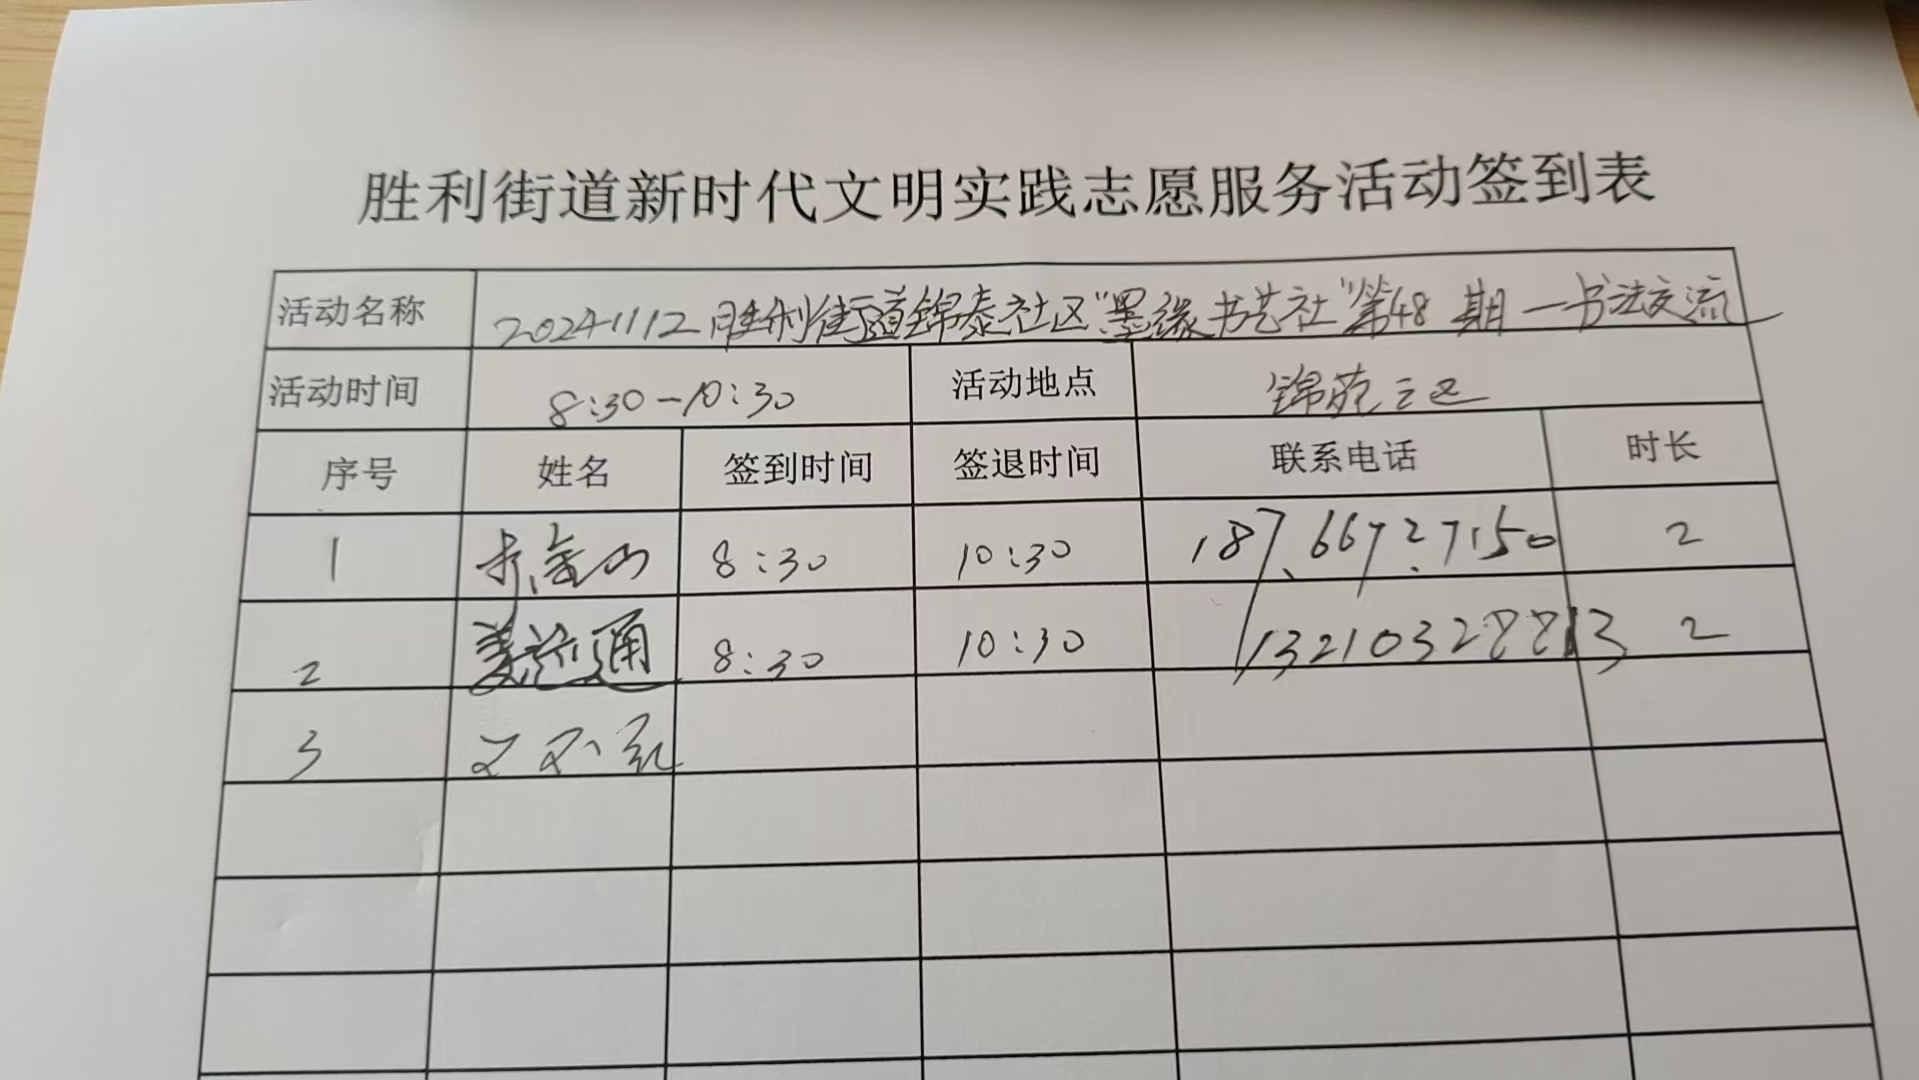 胜利街道新时代文明实践志愿服务活动签到表
活动名称 20241112胜利街道锦泰社区"墨缘书艺社"第48期—书法交流
活动时间 8:30-10:30 活动地点 锦苑三区
序号 姓名 签到时间 签退时间 联系电话 时长
1 金山 8:30 10:30 187.6672.7150 2
2 通 8:30 10:30 13210328813 2
3 红